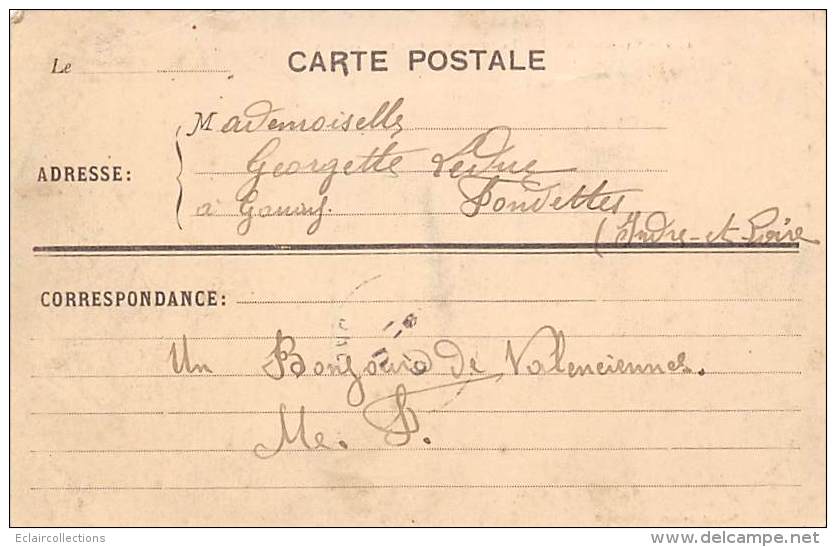 CARTE POSTALE
Le
Mademoiselle
ADRESSE:
Georgette Leduc
à Fondettes
(Indre-et-Loire
CORRESPONDANCE:
Un Bonjour de Valenciennes.
Me. F.
Eclaircollections
www.delcampe.net